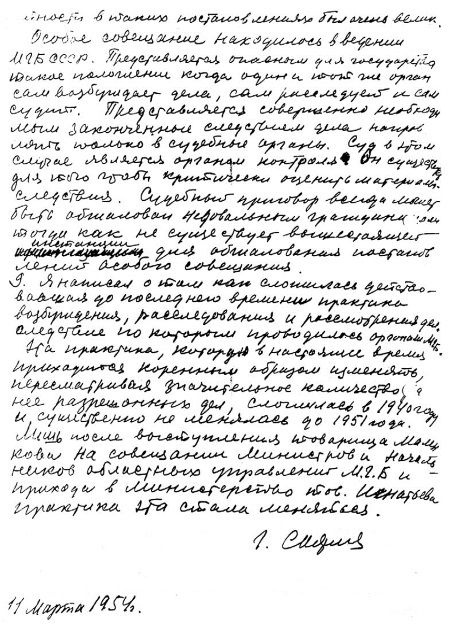 ность в таких постановлениях был очень велик.
Особое совещание находилось в ведении
МГБ СССР. Представляется опасным для государства
такое положение когда один и тот же орган
сам возбуждает дела, сам расследует и сам
судит. Представляется совершенно необходи
мым законченные следствием дела направ
лять только в судебные органы. Суд в этом
случае является органом контроля. Он существует
для того чтобы критически оценить материалы
следствия. Судебный приговор всегда может
быть обжалован
тогда как не существует вышестоящей
инстанции для обжалования постанов
лений особого совещания.
9. Я написал о том как сложилась действо-
вавшая до последнего времени практика
возбуждения, расследования и рассмотрения дел
следствие по которым проводилось органами МГБ.
Эта практика, которую в настоящее время
приходится коренным образом изменять,
пересматривая значительное количество
нее разрешонных дел, сложилась в 1940 году
и существенно не менялась до 1951 года.
Лишь после выступления товарища Мален
кова на совещании Министров и началь
ников областных управлений М.Г.Б и
прихода в Министерство тов. Игнатьева
практика эта стала меняться.
Г.
11 Марта 1954г.